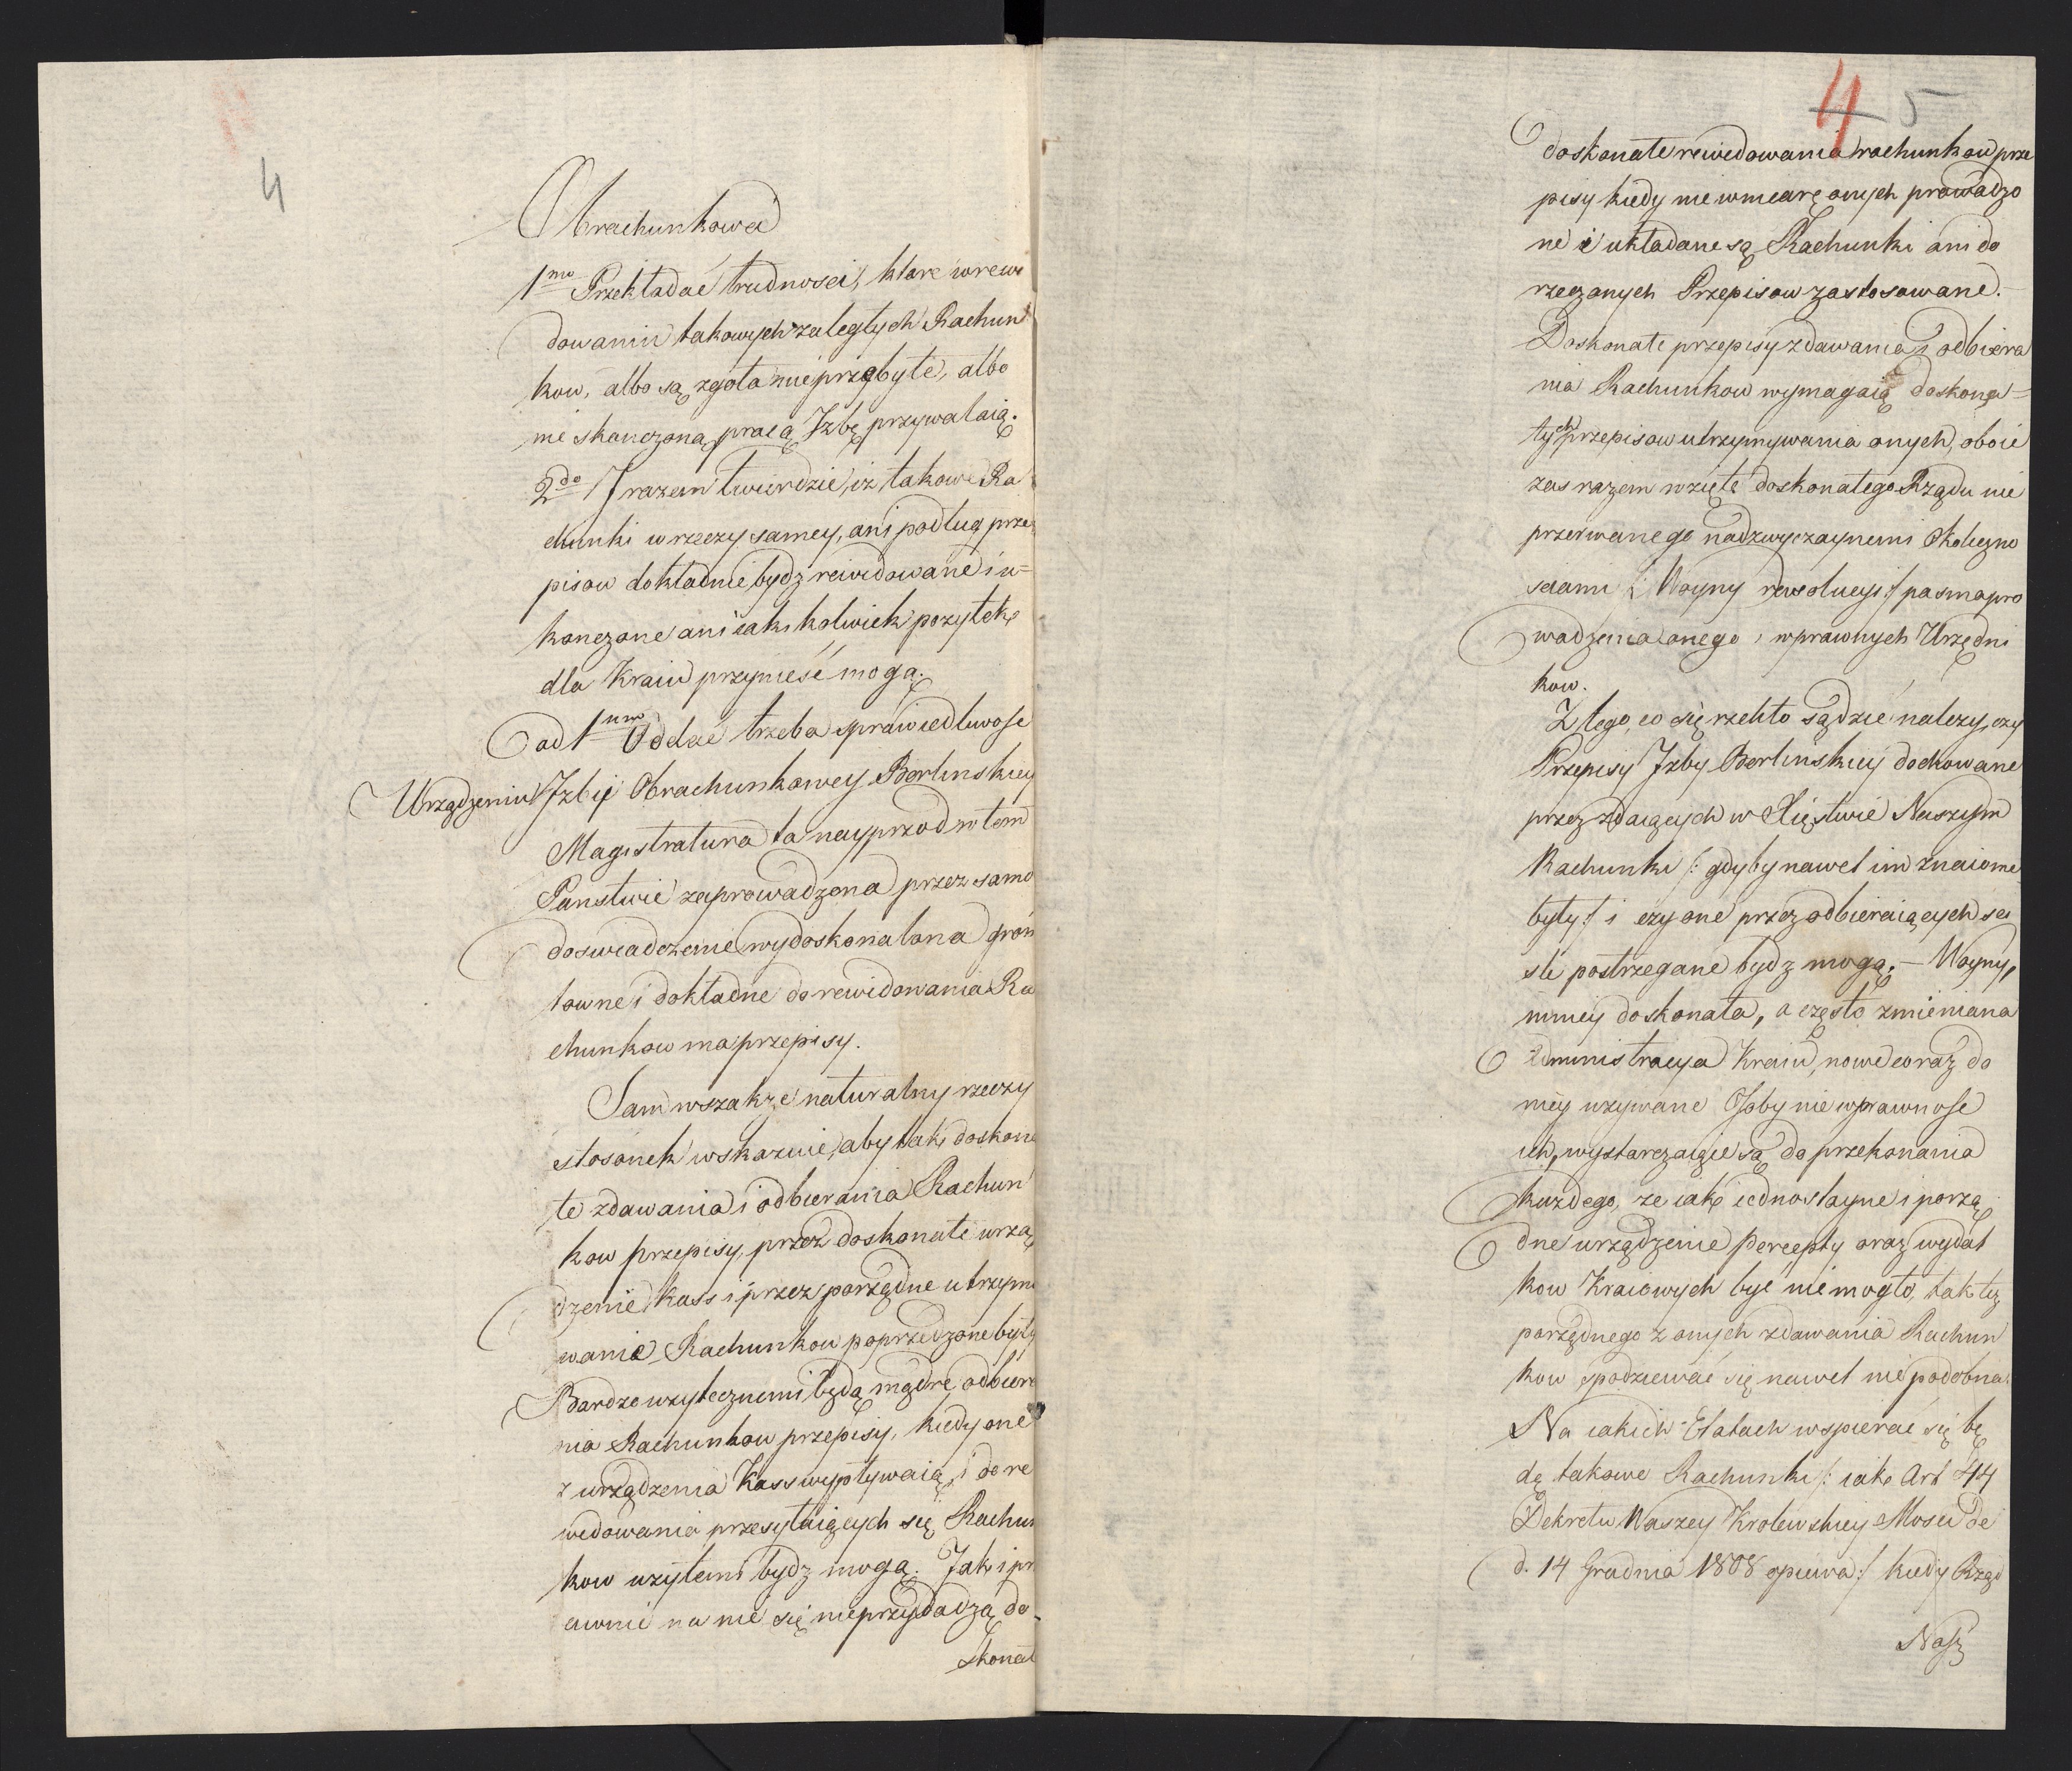 4
Obrachunkowa
1mo Przekładać trudności, które w rewi
dowaniu takowych zaległych Rachun
kow, albo są zgoła nieprzebyte, albo
nieskończoną pracą Izbę przywalaią.
2do I razem twierdzić, iż takowe Ra
chunki w rzeczy samey, ani podług prze
pisow dokładnie bydz rewidowane i u=
kończone ani iakikolwiek pożytek
dla Kraiu przynieść mogą.
ad 1num Oddać trzeba sprawiedliwość
Urządzeniu Izby Obrachunkowey Berlinskiey
Magistratura ta nayprzod w tem
Państwie zaprowadzona przez samo
doswiadczenie wydoskonalona grón
towne i dokładne do rewidowania Ra
chunkow ma przepisy.
Sam wszakże naturalny rzeczy
stosónek wskazuie, aby tak doskona
łe zdawania i odbierania Rachun
kow przepisy, przez doskonałe urzą
dzenie Kass i przez porządne utrzymy
wanie Rachunkow poprzedzone były
Bardzo użytecznemi będą mądre odbiera
nia Rachunkow przepisy, kiedy one
z urządzenia Kass wypływaią, i do re
widowania przesyłaiących się Rachun
kow użytemi bydz mogą. Jak i pr
awnie na nic się nieprzydadzą do=
skonał
4 5
doskonałe rewidowania rachunkow prze
pisy kiedy nie w miarę onych prowadzo
ne i układane są Rachunki ani do
rzeczonych Przepisow zastosowane.
Doskonałe przepisy zdawania i odbiera
nia Rachunkow wymagaią doskona=
łych przepisow utrzymywania onych, oboie
zas razem wzięte doskonałego Rządu nie
przerwanego nadzwyczaynemi Okoliczno
sciami /: Woyny rewolucyi :/ pasma pro
wadzenia onego, wprawnych Urzędni
kow.
Z tego, co się rzekło sądzić należy, czy
Przepisy Izby Berlińskiey dochowane
przez zdaiących w Xięstwie Naszym
Rachunki /: gdyby nawet im znaiome
były :/ i czy one przez odbieraiących sci
śle postrzegane bydz mogą. – Woyny,
mniey doskonała, a często zmieniana
administracya Kraiu, nowe coraz do
niey używane Osoby niewprawność
ich, wystarczaiące są do przekonania
każdego, że iak iednostayne i porzą
dne urządzenie percepty oraz wydat
kow Kraiowych być nie mogło, tak też
porządnego z onych zdawania Rachun
kow spodziewać się nawet nie podobna.
Na iakich Etatach wspierać się bę
dę takowe Rachunki /: iak Art 44
Dekretu Waszey Krolewskiey Mosci de
d. 14 Grudnia 1808 opiewa :/ kiedy Rząd
Nasz